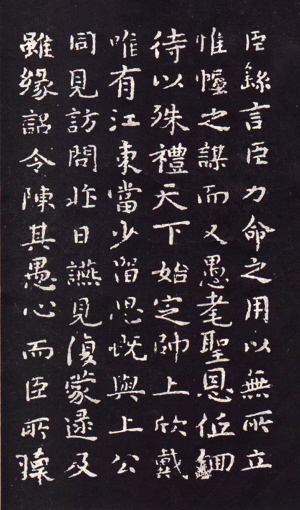 臣繇言臣力命之用以無所立
惟幄之謀而又愚耄聖恩低徊
待以殊禮天下始定帥土欣戴
唯有江東當少留思既與上公
同見訪問昨日讌見復蒙逮及
雖緣詔令陳其愚心而臣所懷